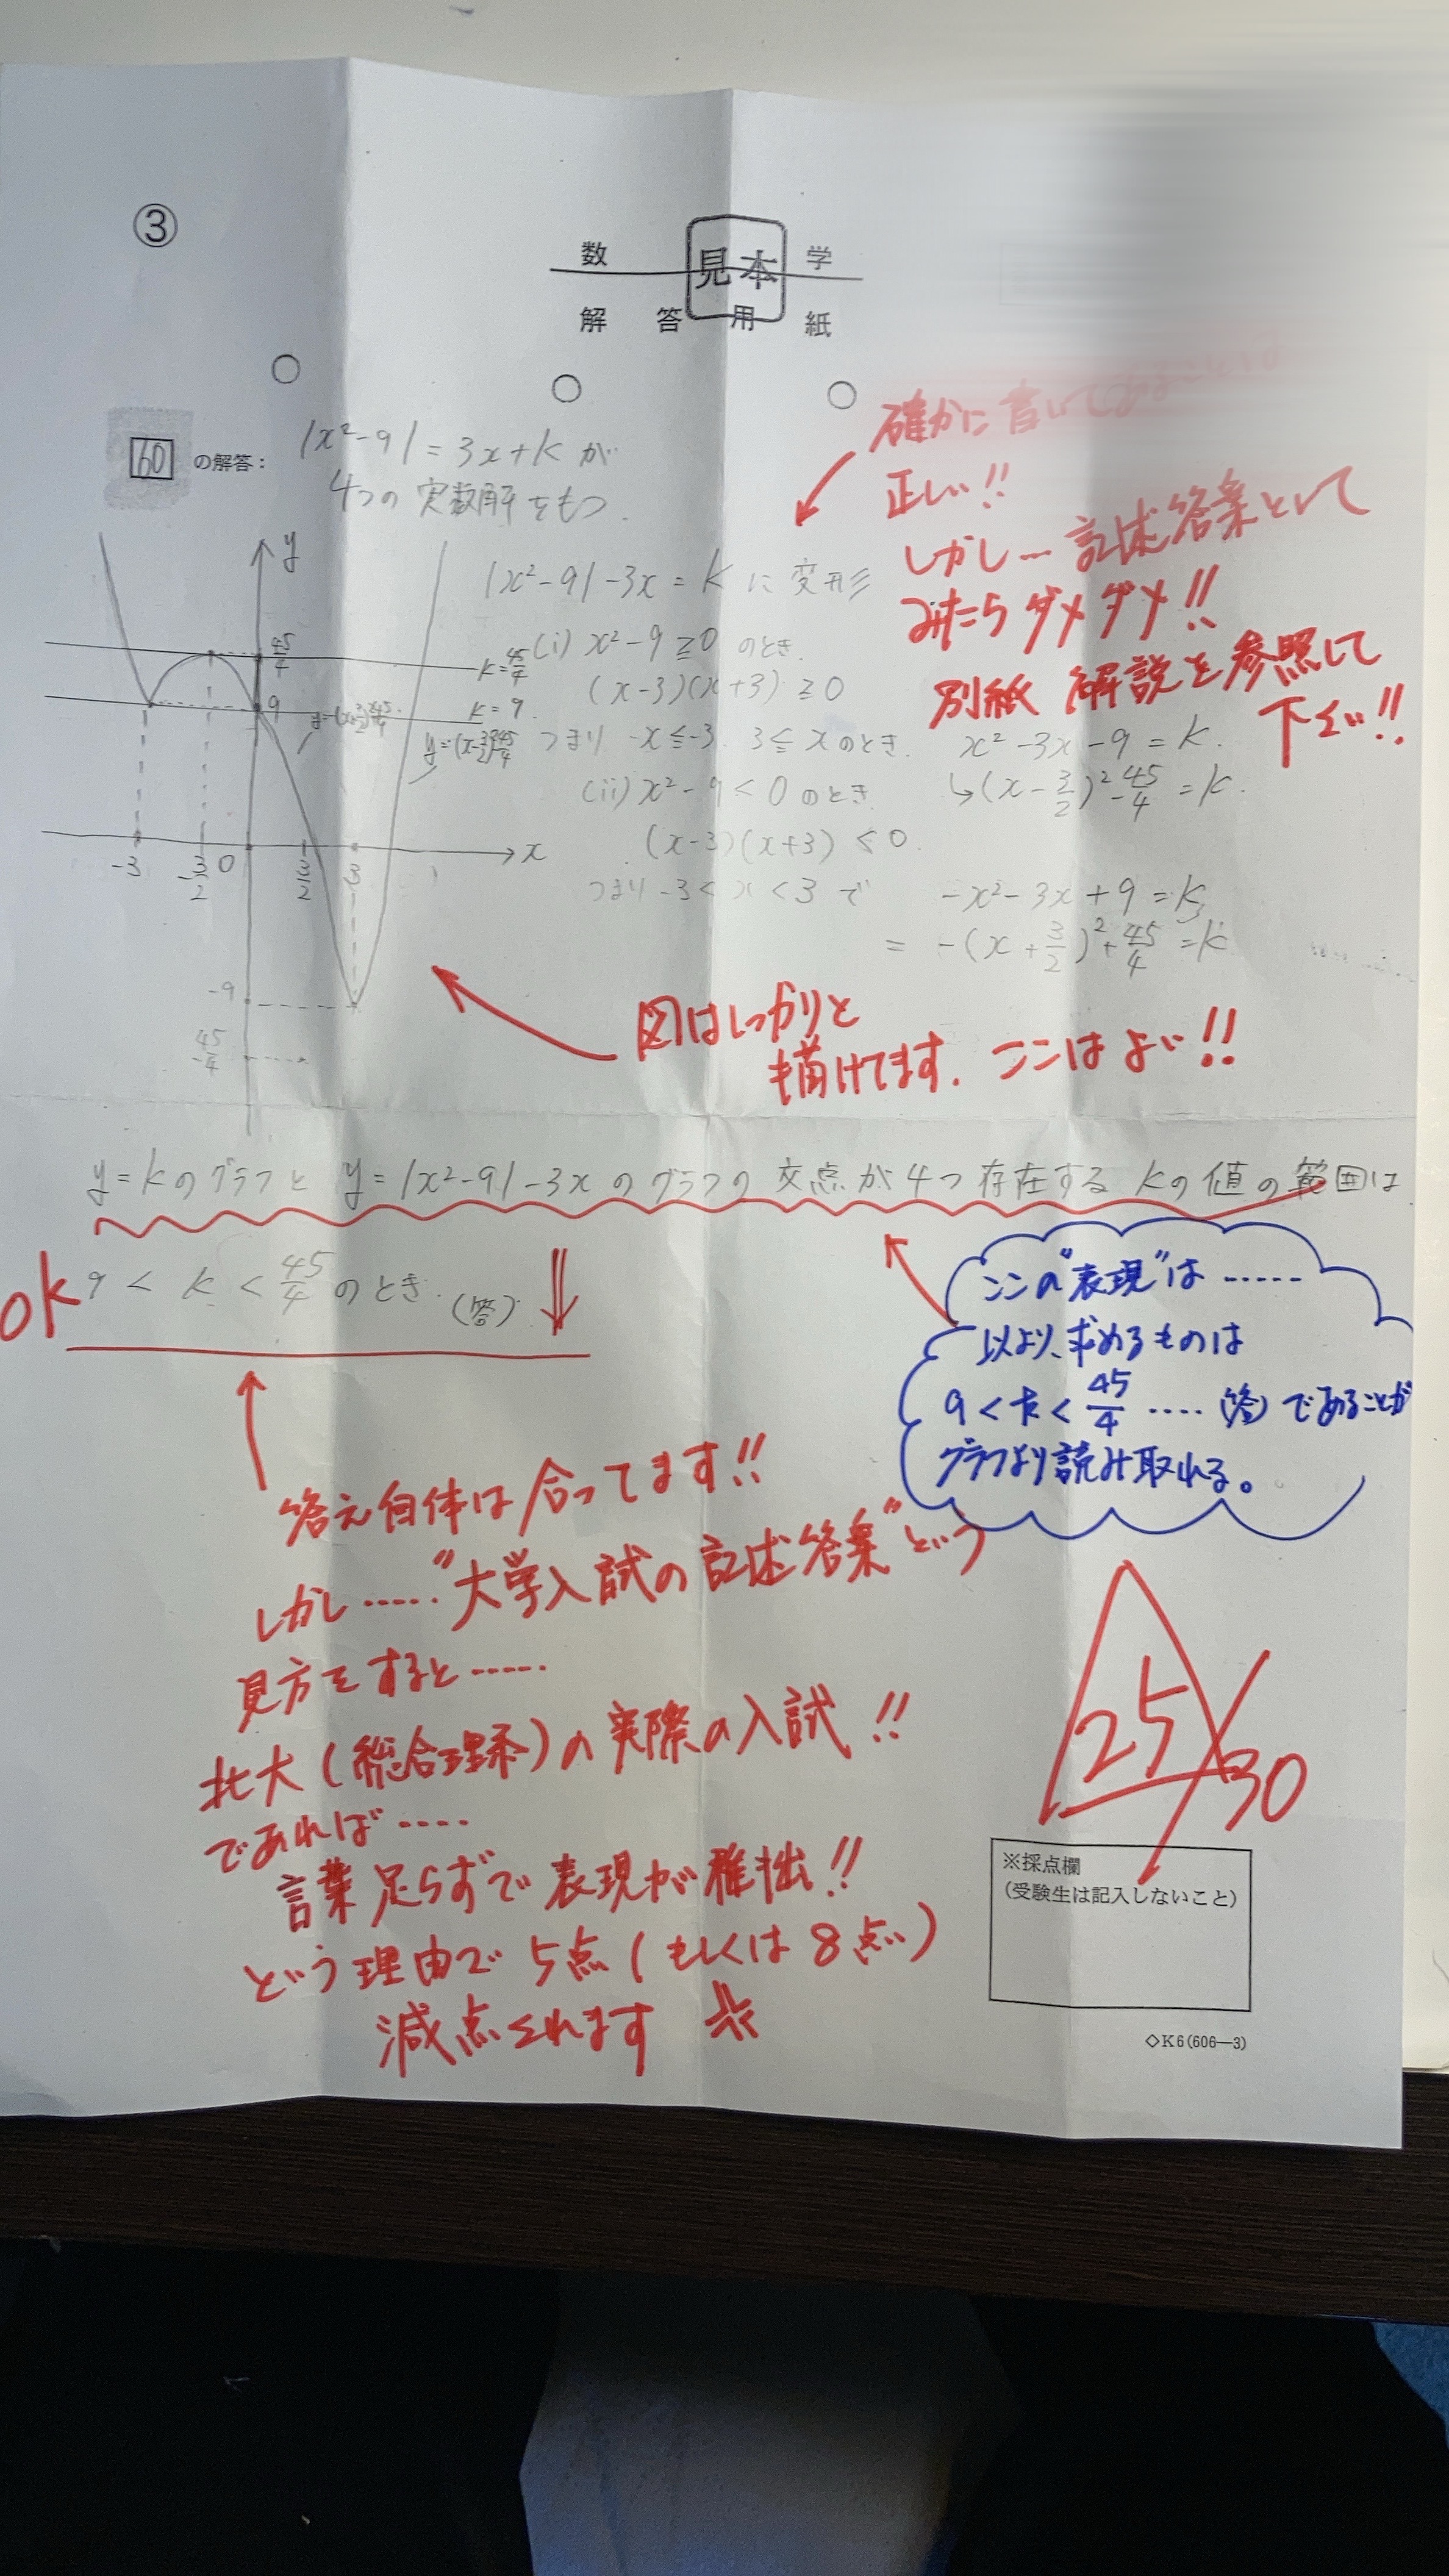 ③
数 学
見本
解 答 用 紙
60 の解答:
|x²-9| = 3x+k が
4つの 実数解をもつ.
確かに書いて
正しい!!
しかし… 記述答案として
みたらダメダメ!!
別紙 解説を参照して
下さい!!
|x²-9|-3x = k に変形
(i) x²-9≧0 のとき.
(x-3)(x+3)≧0
つまり -x≦-3. 3≦x のとき. x²-3x-9=k.
↳(x-3/2)²-45/4=k.
(ii) x²-9<0 のとき
(x-3)(x+3)≦0.
つまり -3<x<3 で -x²-3x+9=k,
= -(x+3/2)²+45/4=k
y
45/4
k=45/4
9
k=9.
x
-3
-3/2
0
3/2
3
-9
-45/4
図はしっかりと
描けてます. ここはよい!!
y=kのグラフと y=|x²-9|-3xのグラフの 交点が4つ存在する kの値の範囲は
ok
9 < k < 45/4 のとき. (答)
ここの"表現"は……
以上より、求めるものは
9<k<45/4 ….(答)であることが
グラフより読み取れる。
答え自体は合ってます!!
しかし……"大学入試の記述答案"という
見方をすると……
北大(総合理系)の実際の入試!!
であれば….
言葉足らずで表現が稚拙!!
という理由で 5点(もしくは8点)
減点されます
25/30
※採点欄
(受験生は記入しないこと)
◇K6(606—3)